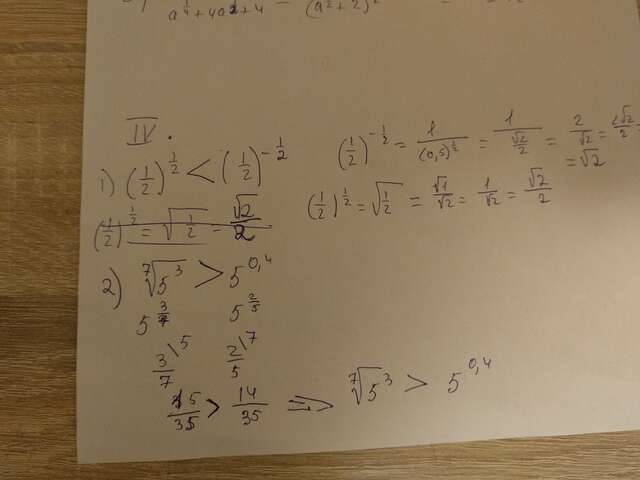 a^{1/4} + 4a^{2} + 4 = (a^{2} + 2)^{2}
IV.
1) (1/2)^{1/2} < (1/2)^{-1/2}
(1/2)^{-1/2} = 1/(0,5)^{1/2} = 1/(√2/2) = 2/√2 = 2√2/2 =
= √2
(1/2)^{1/2} = √(1/2) = √1/√2 = 1/√2 = √2/2
(1/2)^{1/2} = √(1/2) = √2/2
2) ⁷√5³ > 5^{0,4}
5^{3/7} 5^{2/5}
3/7 \5 2/5 \7
15/35 > 14/35 => ⁷√5³ > 5^{0,4}